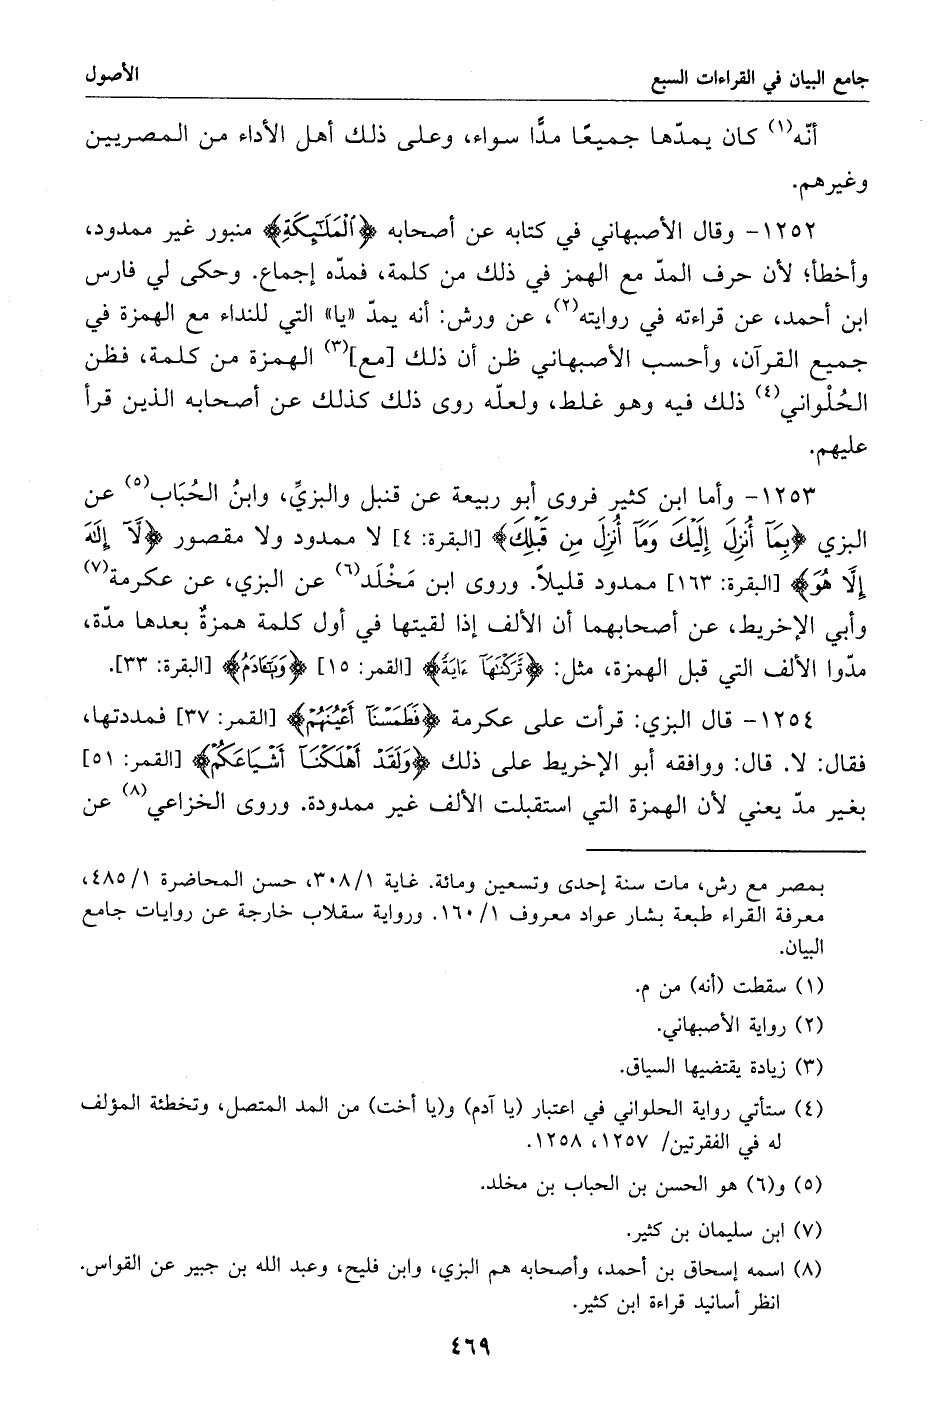 جامع البيان في القراءات السبع
الأصول
أنّه(١) كان يمدّها جميعًا مدًّا سواء، وعلى ذلك أهل الأداء من المصريين
وغيرهم.
١٢٥٢- وقال الأصبهاني في كتابه عن أصحابه ﴿ٱلْمَلَٰٓئِكَةِ﴾ منبور غير ممدود،
وأخطأ؛ لأن حرف المدّ مع الهمز في ذلك من كلمة، فمدّه إجماع. وحكى لي فارس
ابن أحمد، عن قراءته في روايته(٢)، عن ورش: أنه يمدّ «يا» التي للنداء مع الهمزة في
جميع القرآن، وأحسب الأصبهاني ظن أن ذلك [مع](٣) الهمزة من كلمة، فظن
الحُلْواني(٤) ذلك فيه وهو غلط، ولعلّه روى ذلك كذلك عن أصحابه الذين قرأ
عليهم.
١٢٥٣- وأما ابن كثير فروى أبو ربيعة عن قنبل والبزيِّ، وابنُ الحُبَاب(٥) عن
البزي ﴿بِمَآ أُنزِلَ إِلَيْكَ وَمَآ أُنزِلَ مِن قَبْلِكَ﴾ [البقرة: ٤] لا ممدود ولا مقصور ﴿لَّآ إِلَٰهَ
إِلَّا هُوَ﴾ [البقرة: ١٦٣] ممدود قليلاً. وروى ابن مَخْلَد(٦) عن البزي، عن عكرمة(٧)
وأبي الإخريط، عن أصحابهما أن الألف إذا لقيتها في أول كلمة همزةٌ بعدها مدّة،
مدّوا الألف التي قبل الهمزة، مثل: ﴿تَّرَكْنَٰهَآ ءَايَةً﴾ [القمر: ١٥] ﴿وَيَٰٓـَٔادَمُ﴾ [البقرة: ٣٣].
١٢٥٤- قال البزي: قرأت على عكرمة ﴿فَطَمَسْنَآ أَعْيُنَهُمْ﴾ [القمر: ٣٧] فمددتها،
فقال: لا. قال: ووافقه أبو الإخريط على ذلك ﴿وَلَقَدْ أَهْلَكْنَآ أَشْيَاعَكُمْ﴾ [القمر: ٥١]
بغير مدّ يعني لأن الهمزة التي استقبلت الألف غير ممدودة. وروى الخزاعي(٨) عن
بمصر مع رش، مات سنة إحدى وتسعين ومائة. غاية ٣٠٨/١، حسن المحاضرة ٤٨٥/١،
معرفة القراء طبعة بشار عواد معروف ١٦٠/١. ورواية سقلاب خارجة عن روايات جامع
البيان.
(١) سقطت (أنه) من م.
(٢) رواية الأصبهاني.
(٣) زيادة يقتضيها السياق.
(٤) ستأتي رواية الحلواني في اعتبار (يا آدم) و(يا أخت) من المد المتصل، وتخطئة المؤلف
له في الفقرتين/ ١٢٥٧، ١٢٥٨.
(٥) و(٦) هو الحسن بن الحباب بن مخلد.
(٧) ابن سليمان بن كثير.
(٨) اسمه إسحاق بن أحمد، وأصحابه هم البزي، وابن فليح، وعبد الله بن جبير عن القواس.
انظر أسانيد قراءة ابن كثير.
٤٦٩